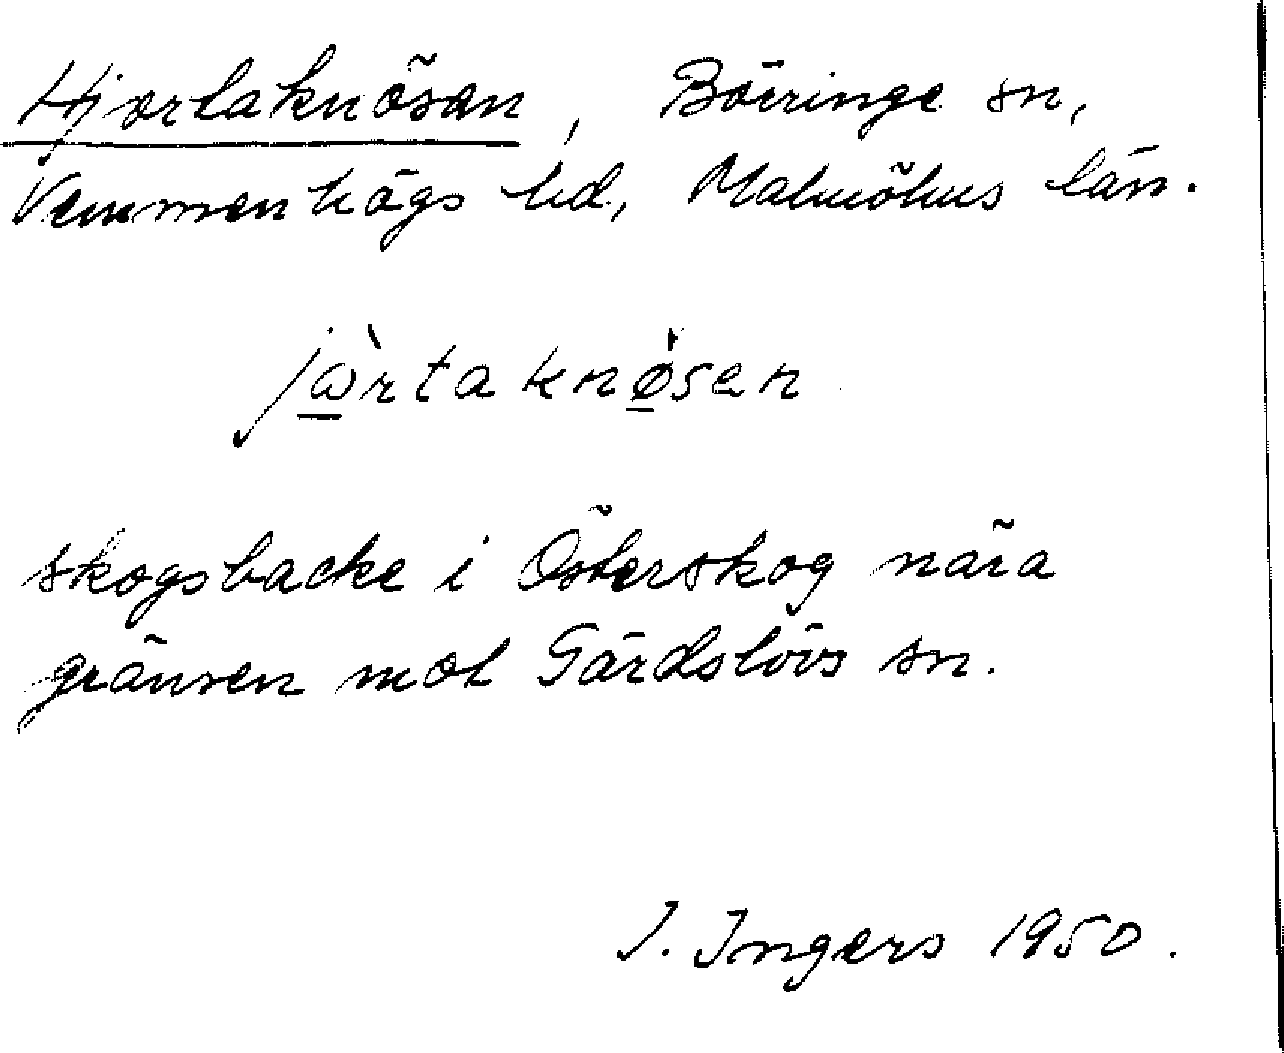 Hjortaknösen, Börringe sn,
Vemmenhögs hd, Malmöhus län.
jὼ̲rtaknø̲̍sen
skogsbacke i Österskog nära
gränsen mot Gärdslövs sn.
I. Ingers 1950.